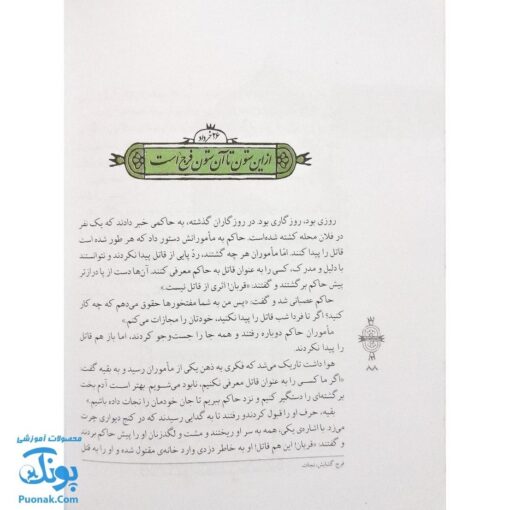 ۲۶ خرداد
از این ستون تا آن ستون فرج است
روزی بود، روزگاری بود. در روزگاران گذشته، به حاکمی خبر دادند که یک نفر
در فلان محله کشته شده‌است. حاکم به مأمورانش دستور داد که هر طور شده است
قاتل را پیدا کنند. امّا مأموران هر چه گشتند، ردّ پایی از قاتل پیدا نکردند و نتوانستند
با دلیل و مدرک، کسی را به عنوان قاتل به حاکم معرفی کنند. آن‌ها دست از پا درازتر
پیش حاکم برگشتند و گفتند: «قربان! اثری از قاتل نیست.»
حاکم عصبانی شد و گفت: «پس من به شما مفتخورها حقوق می‌دهم که چه کار
کنید؟ اگر تا فردا شب قاتل را پیدا نکنید، خودتان را مجازات می‌کنم.»
مأموران حاکم دوباره رفتند و همه جا را جست‌وجو کردند، اما باز هم قاتل
را پیدا نکردند.
هوا داشت تاریک می‌شد که فکری به ذهن یکی از مأموران رسید و به بقیه گفت:
«اگر ما کسی را به عنوان قاتل معرفی نکنیم، نابود می‌شویم. بهتر است آدم بخت
برگشته‌ای را دستگیر کنیم و نزد حاکم ببریم تا جان خودمان را نجات داده باشیم.»
بقیه، حرف او را قبول کردند و رفتند تا به گدایی رسیدند که در کنج دیواری چرت
می‌زد. با اشاره‌ی یکی، همه به سر او ریختند و مشت و لگدزنان او را پیش حاکم بردند
و گفتند: «قربان! این هم قاتل! او به خاطر دزدی وارد خانه‌ی مقتول شده و او را به قتل
فرج: گشایش، نجات
۸۸
محصولات آموزشی
پونک
Puonak.Com